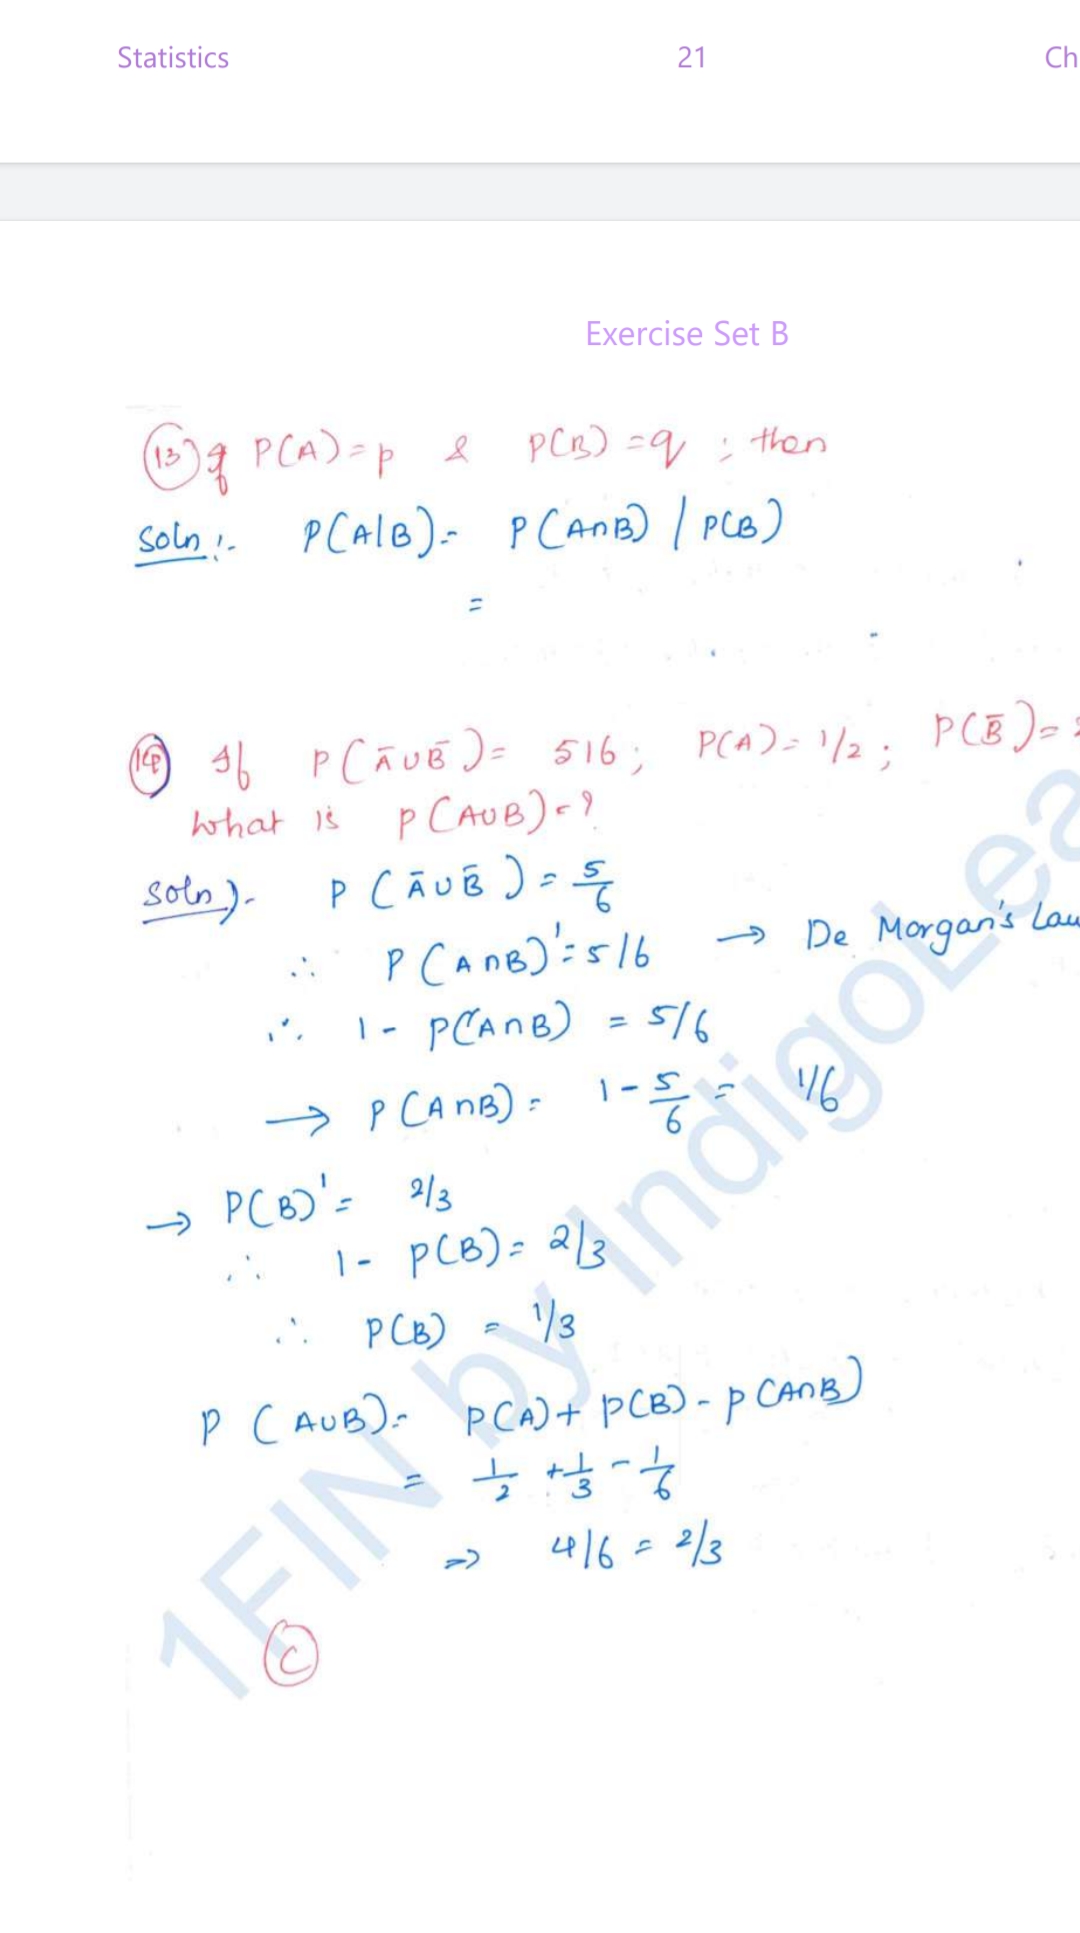 Statistics 21 Ch
Exercise Set B
(13) If P(A)=p & P(B)=q ; then
Soln:- P(A|B)= P(A∩B) / P(B)
=
(14) If P(Ā∪B̄)= 5/6; P(A)=1/2; P(B̄)=
What is P(A∪B)=?
Soln)- P(Ā∪B̄)=5/6
∴ P(A∩B)'=5/6 → De Morgan's Law
∴ 1- P(A∩B) = 5/6
→ P(A∩B)= 1-5/6 = 1/6
→ P(B)'= 2/3
∴ 1- P(B)= 2/3
∴ P(B) = 1/3
P(A∪B)= P(A)+P(B)-P(A∩B)
= 1/2 +1/3 -1/6
⇒ 4/6 = 2/3
(C)
1FIN by IndigoLea